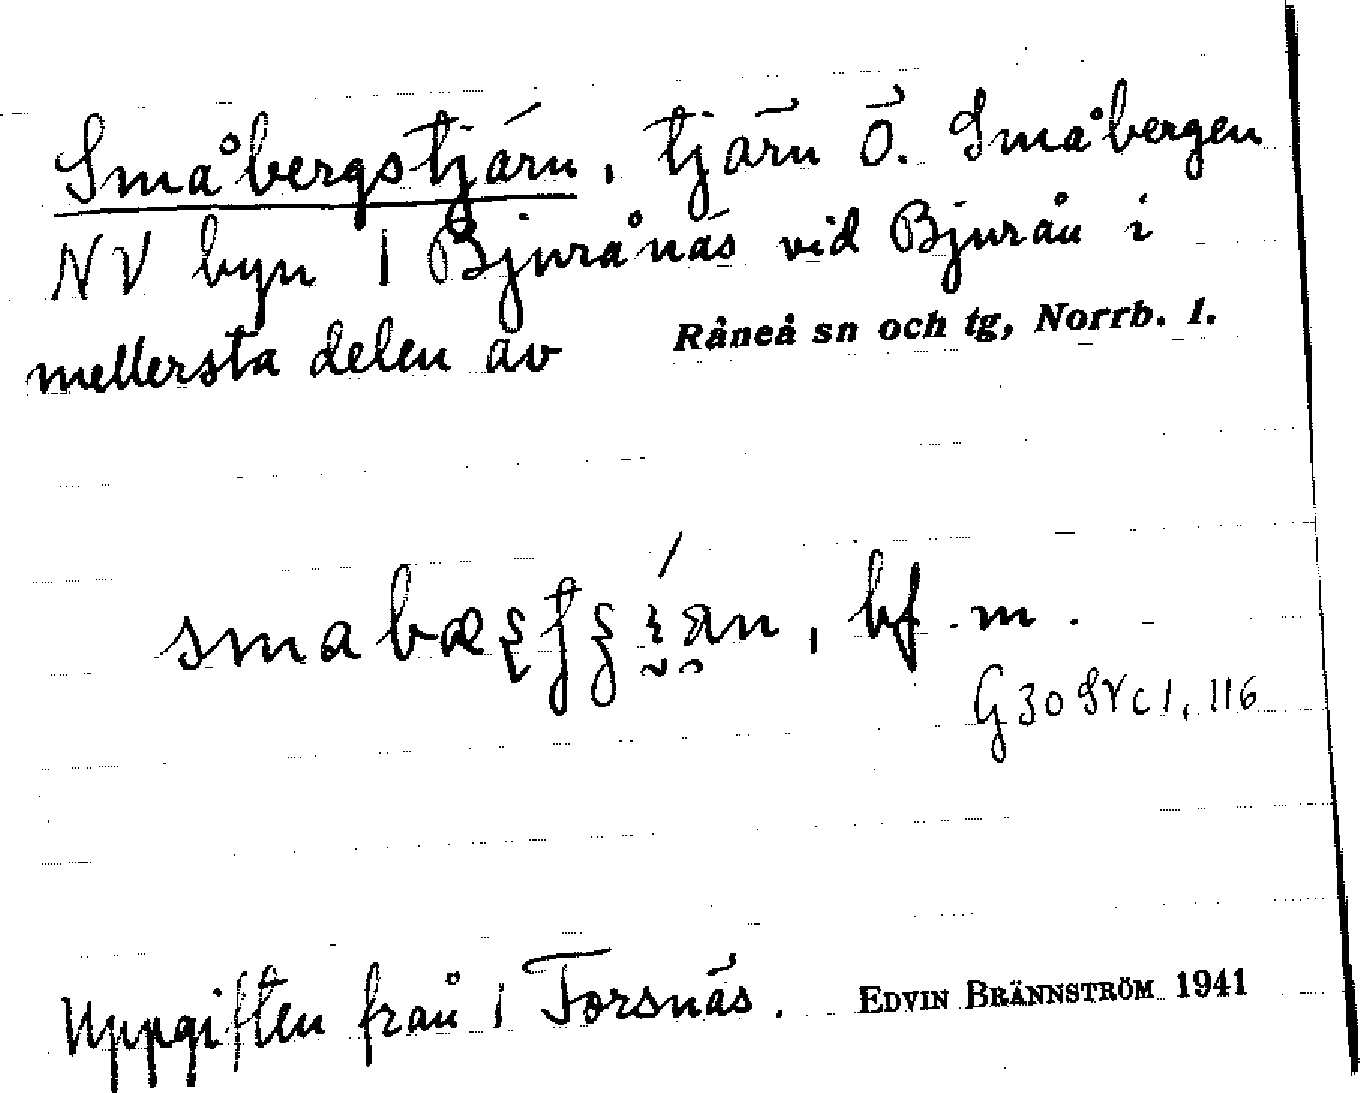 Småbergstjärn, tjärn Ö. Småbergen
NV byn 1 Bjurånäs vid Bjurån i
mellersta delen av Råneå sn och tg, Norrb. l.
bf. m.
G 30 SV c 1, 116
Uppgiften från 1 Forsnäs. EDVIN BRÄNNSTRÖM 1941